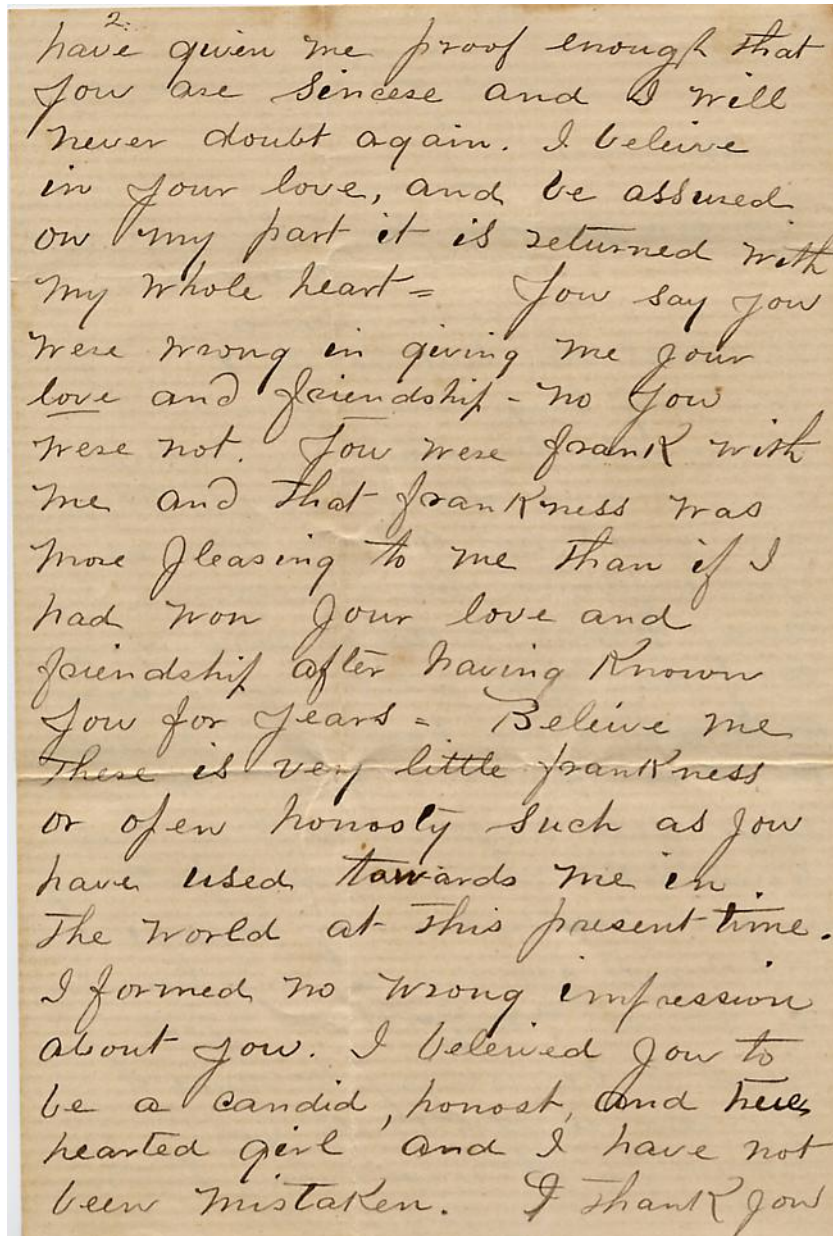 2.
have given me proof enough that
you are sincere and I will
never doubt again. I beleive
in your love, and be assured
on my part it is returned with
my whole heart = You say you
were wrong in giving me your
love and friendship - no you
were not. You were frank with
me and that frankness was
more pleasing to me than if I
had won your love and
friendship after having known
you for years = Beleive me
there is very little frankness
or open honosty such as you
have used towards me in
the world at this present time.
I formed no wrong impression
about you. I beleived you to
be a candid, honost, and true
hearted girl and I have not
been mistaken. I thank you